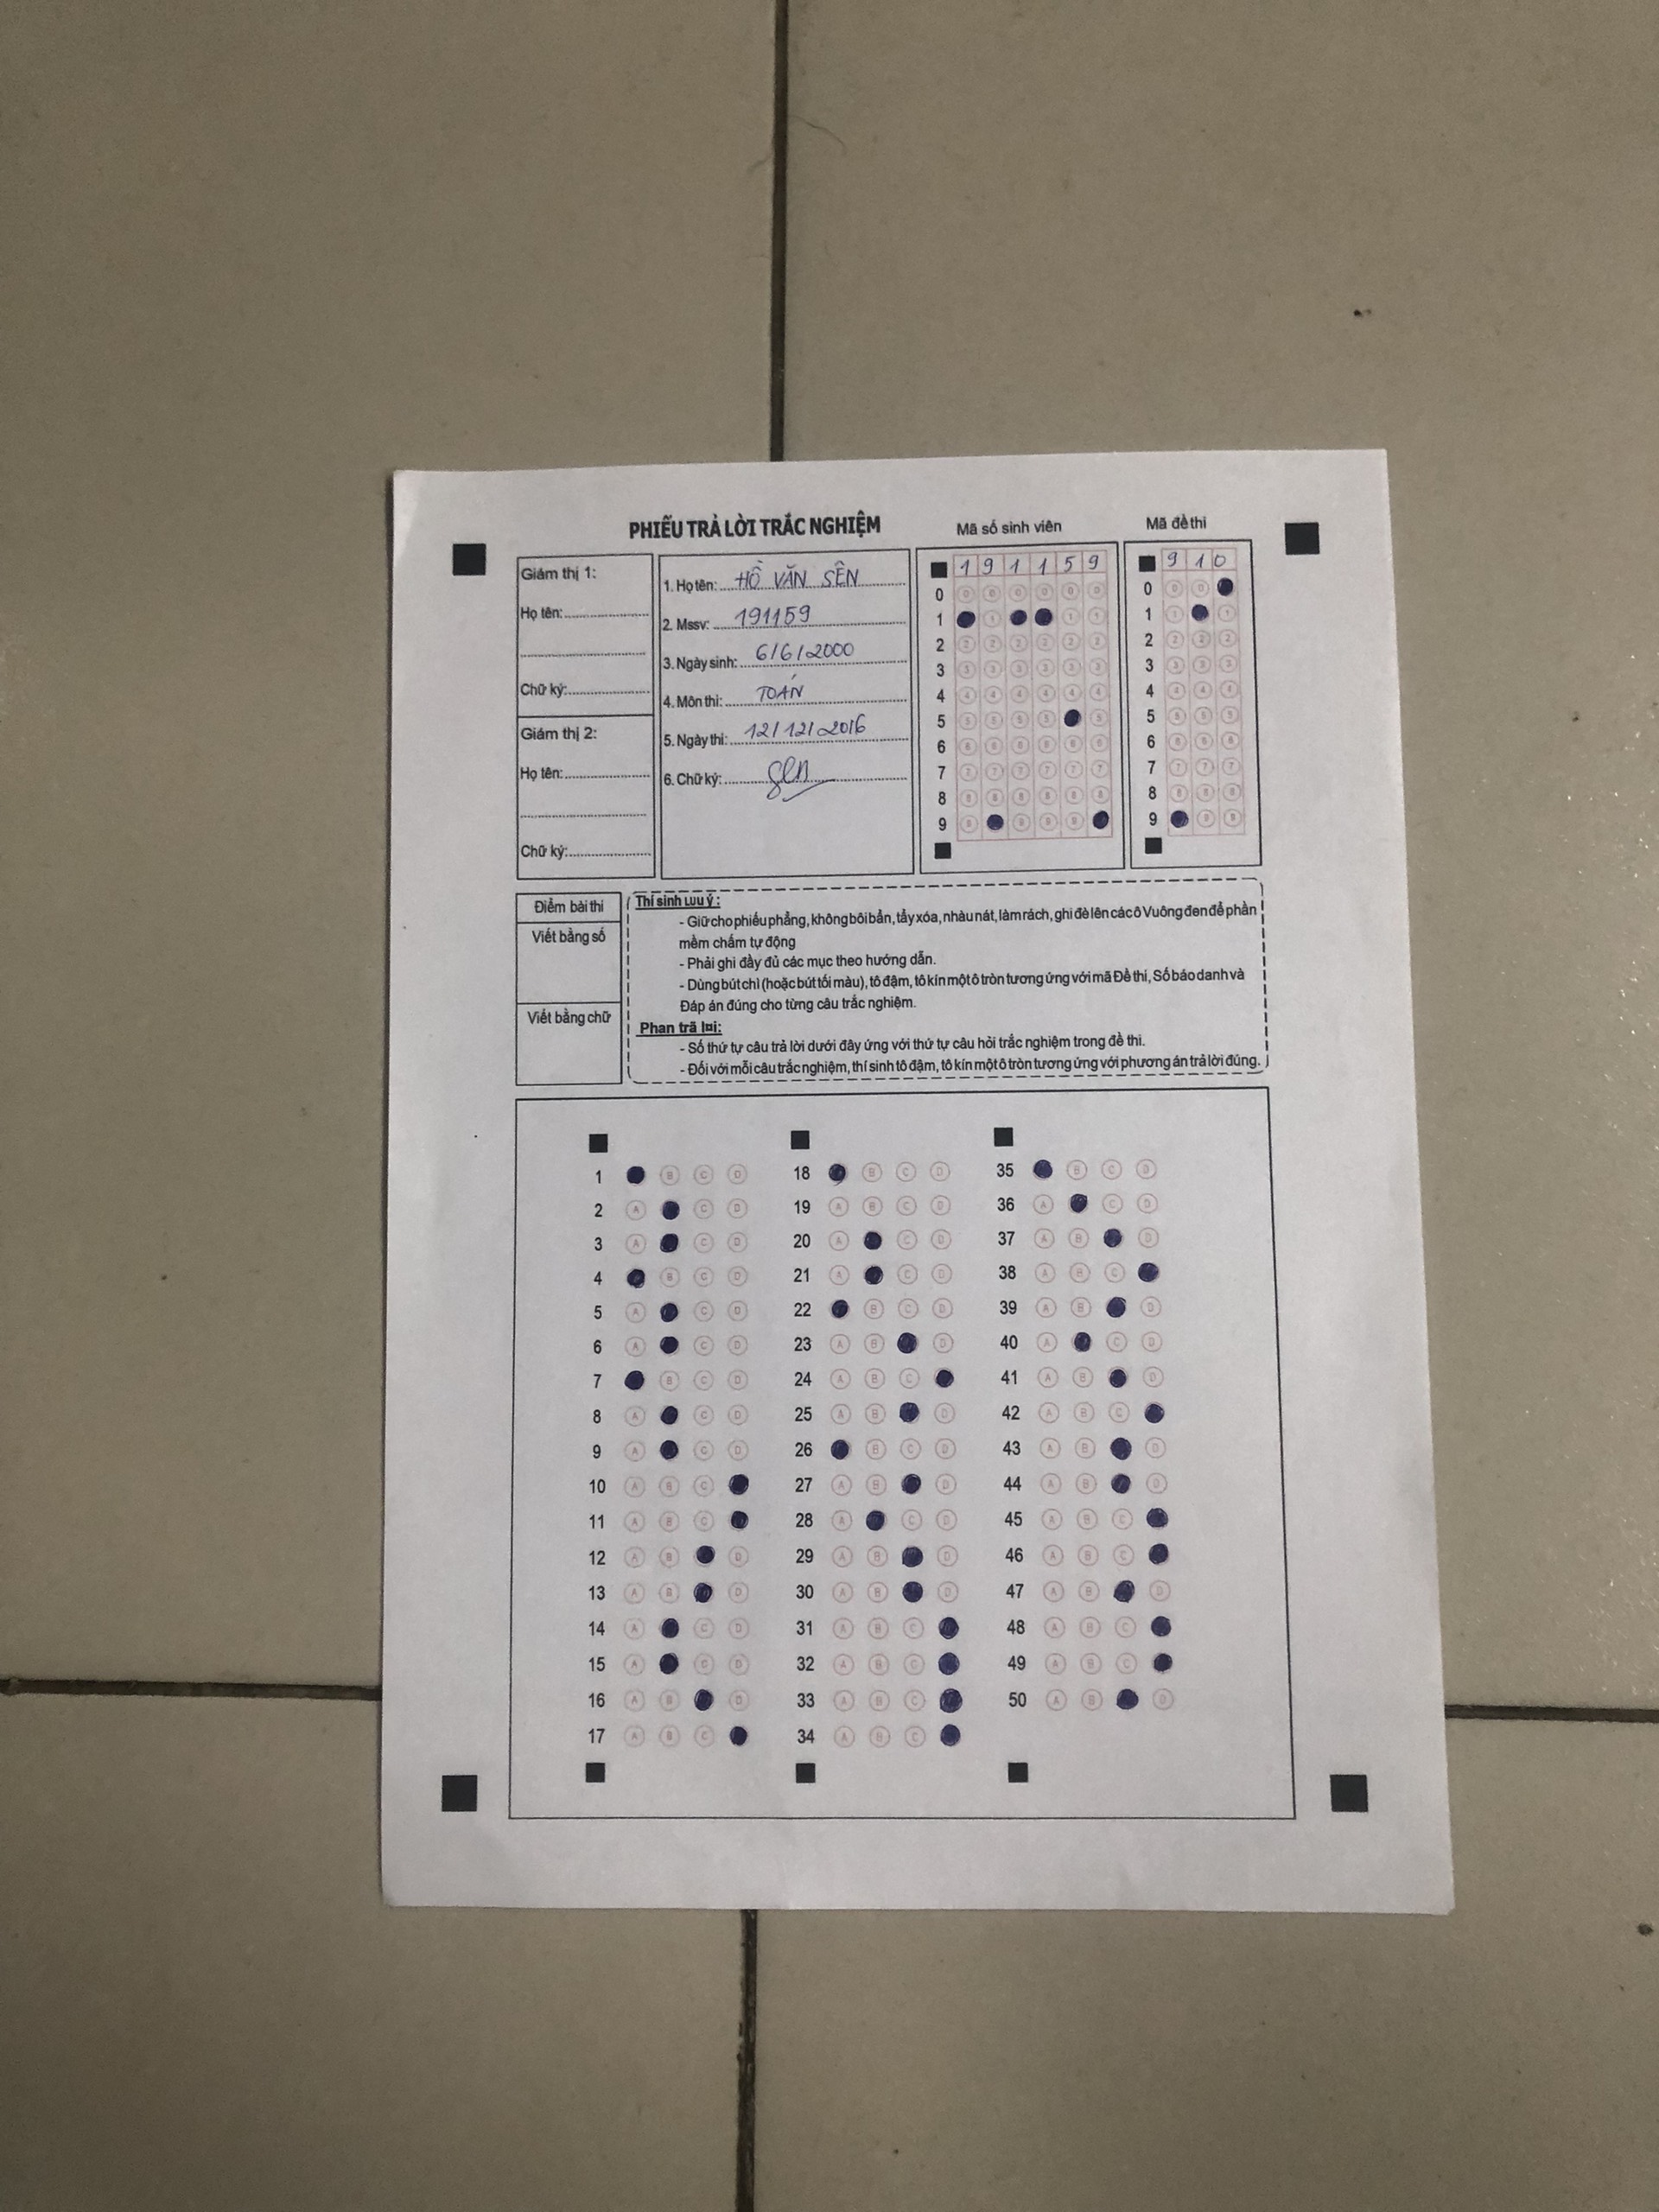 PHIẾU TRẢ LỜI TRẮC NGHIỆM
Mã số sinh viên
Mã đề thi
Giám thị 1:
Họ tên:
Chữ ký:
Giám thị 2:
Họ tên:
Chữ ký:
1. Họ tên: HỒ VĂN SÊN
2. Mssv: 191159
3. Ngày sinh: 6/6/2000
4. Môn thi: TOÁN
5. Ngày thi: 12/12/2016
6. Chữ ký:
1 9 1 1 5 9
0
1
2
3
4
5
6
7
8
9
9 1 0
0
1
2
3
4
5
6
7
8
9
Điểm bài thi
Viết bằng số
Viết bằng chữ
Thí sinh lưu ý:
- Giữ cho phiếu phẳng, không bôi bẩn, tẩy xóa, nhàu nát, làm rách, ghi đè lên các ô Vuông đen để phần
mềm chấm tự động
- Phải ghi đầy đủ các mục theo hướng dẫn.
- Dùng bút chì (hoặc bút tối màu), tô đậm, tô kín một ô tròn tương ứng với mã Đề thi, Số báo danh và
Đáp án đúng cho từng câu trắc nghiệm.
Phan trã lai:
- Số thứ tự câu trả lời dưới đây ứng với thứ tự câu hỏi trắc nghiệm trong đề thi.
- Đối với mỗi câu trắc nghiệm, thí sinh tô đậm, tô kín một ô tròn tương ứng với phương án trả lời đúng.
1 B C D
2 A C D
3 A C D
4 B C D
5 A C D
6 A C D
7 B C D
8 A C D
9 A C D
10 A B C
11 A B C
12 A B D
13 A B D
14 A C D
15 A C D
16 A B D
17 A B C
18 B C D
19 A B C D
20 A C D
21 A C D
22 B C D
23 A B D
24 A B C
25 A B D
26 B C D
27 A B D
28 A C D
29 A B D
30 A B D
31 A B C
32 A B C
33 A B C
34 A B C
35 B C D
36 A C D
37 A B D
38 A B C
39 A B D
40 A C D
41 A B D
42 A B C
43 A B D
44 A B D
45 A B C
46 A B C
47 A B D
48 A B C
49 A B C
50 A B D